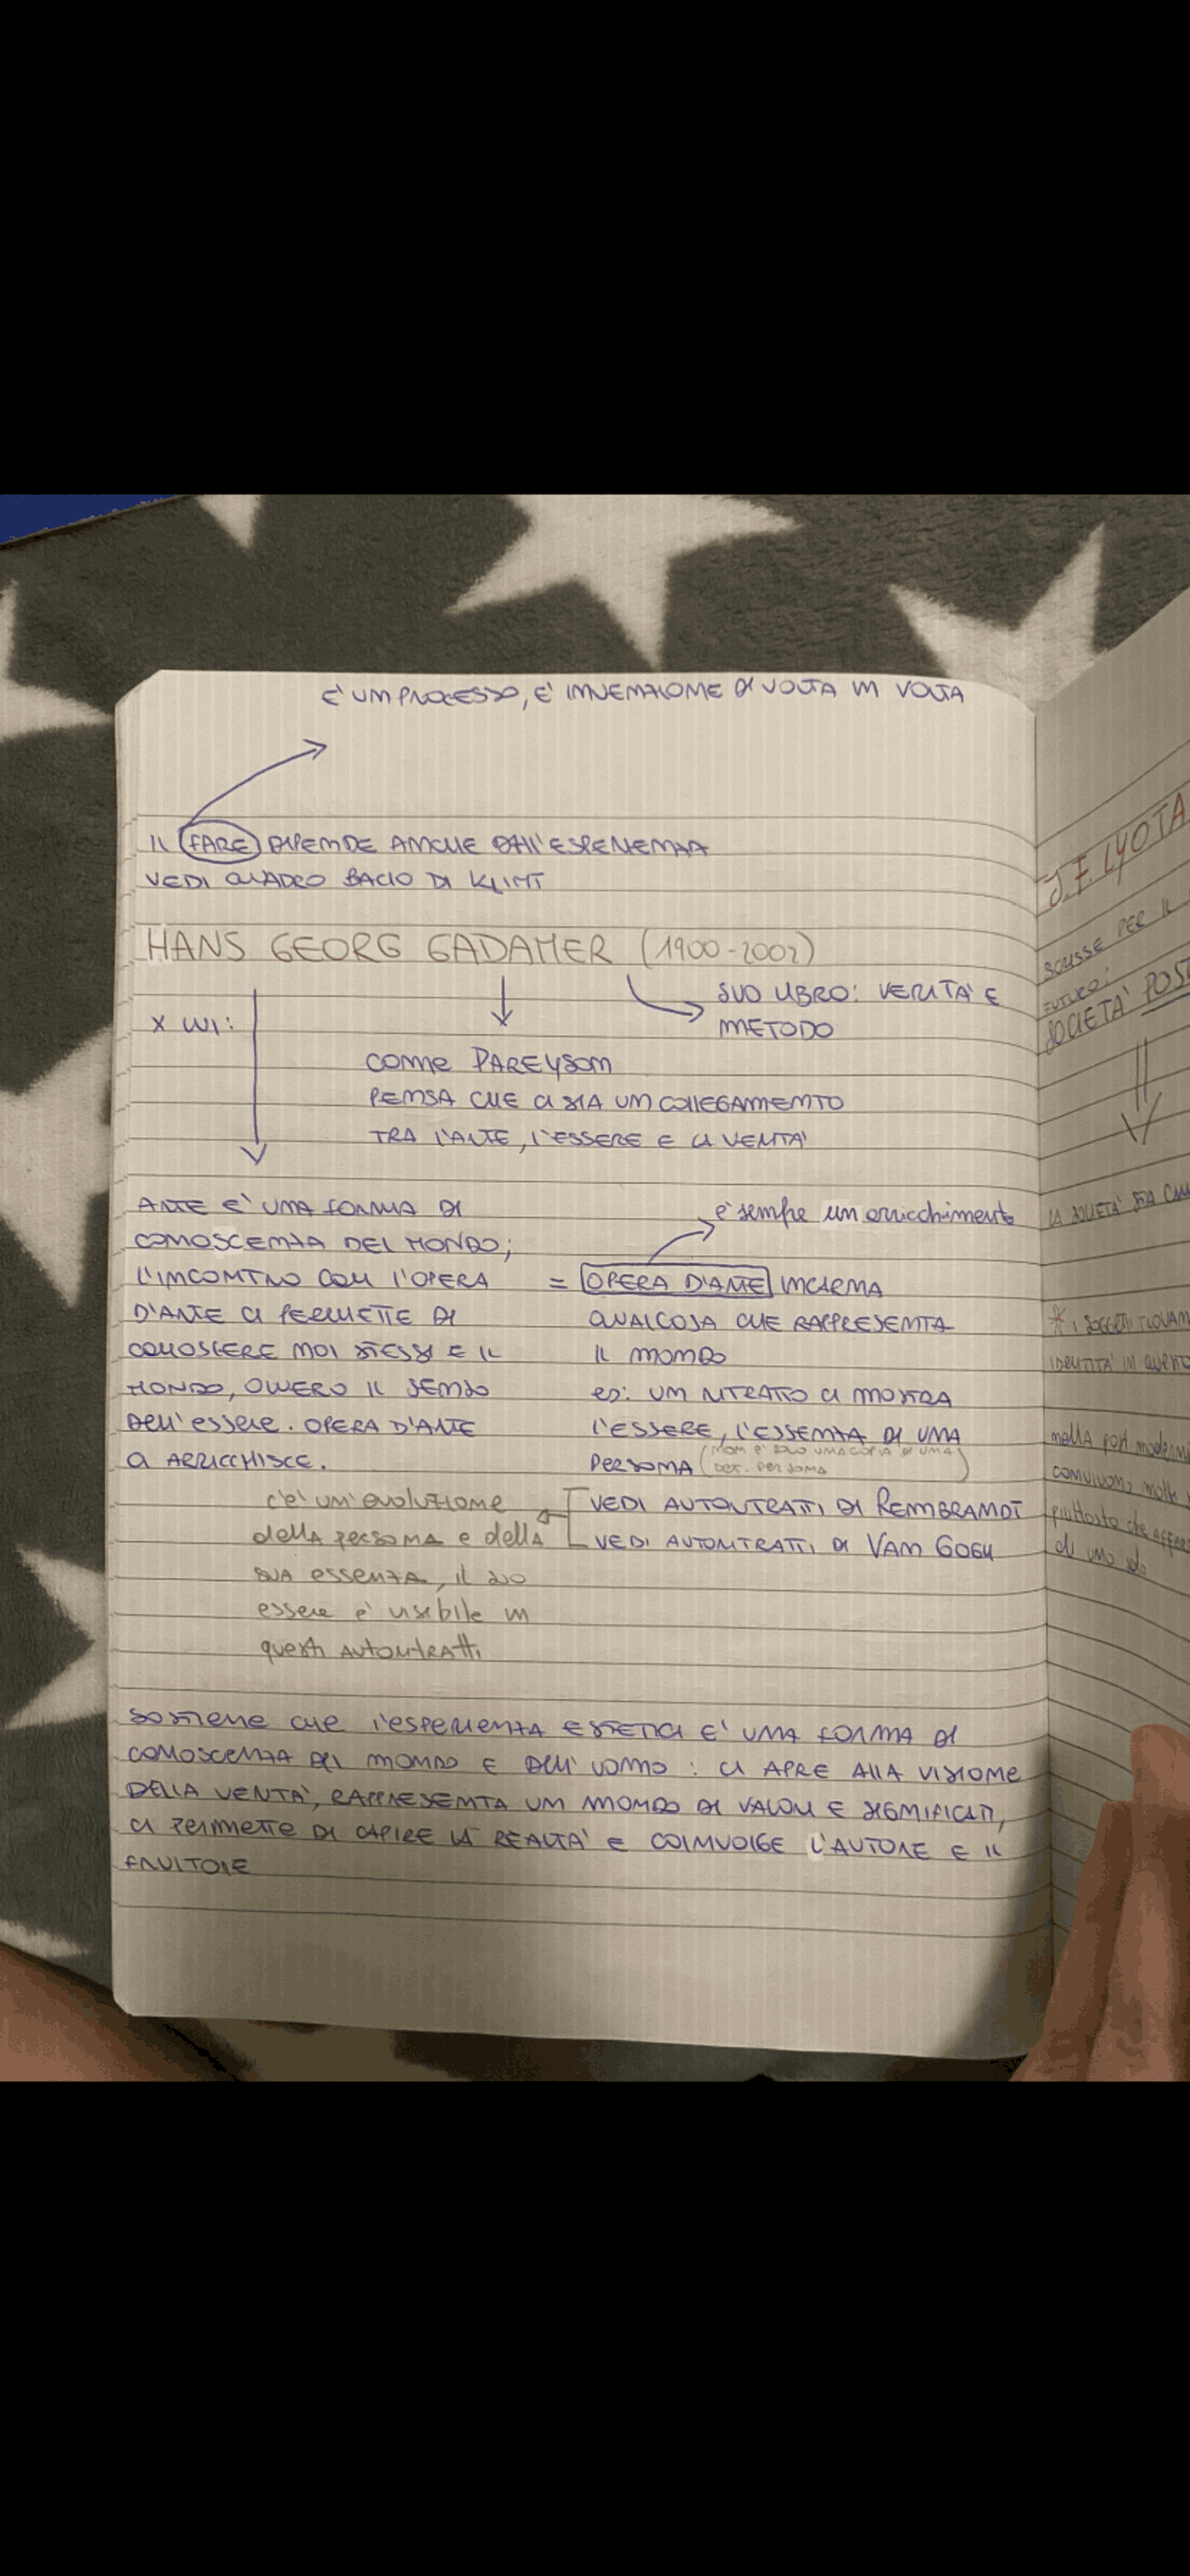 È UN PROCESSO, E' INVENZIONE DI VOLTA IN VOLTA
IL FARE DIPENDE ANCHE DALL'ESPERIENZA
VEDI QUADRO BACIO DI KLIMT
HANS GEORG GADAMER (1900-2002)
SUO LIBRO: VERITA' E
METODO
X LUI:
COME PAREYSON
PENSA CHE CI SIA UN COLLEGAMENTO
TRA L'ARTE, L'ESSERE E LA VERITA'
ARTE E' UNA FORMA DI
CONOSCENZA DEL MONDO;
L'INCONTRO CON L'OPERA
D'ARTE CI PERMETTE DI
CONOSCERE NOI STESSI E IL
MONDO, OVVERO IL SENSO
DELL'ESSERE. OPERA D'ARTE
CI ARRICCHISCE.
è sempre un arricchimento
= OPERA D'ARTE INCARNA
QUALCOSA CHE RAPPRESENTA
IL MONDO
es: UN RITRATTO CI MOSTRA
L'ESSERE, L'ESSENZA DI UNA
PERSONA (NON E' SOLO UNA COPIA DI UNA
DET. PERSONA)
VEDI AUTORITRATTI DI REMBRANDT
VEDI AUTORITRATTI DI VAN GOGH
c'è un'evoluzione
della persona e della
sua essenza, il suo
essere è visibile in
questi autoritratti
SOSTIENE CHE L'ESPERIENZA ESTETICA E' UNA FORMA DI
CONOSCENZA DEL MONDO E DELL'UOMO: CI APRE ALLA VISIONE
DELLA VERITA', RAPPRESENTA UN MONDO DI VALORI E SIGNIFICATI,
CI PERMETTE DI CAPIRE LA REALTA' E COINVOLGE L'AUTORE E IL
FRUITORE
J.F. LYOTA
SCRISSE PER IL
FUTURO:
SOCIETA' POST
LA SOCIETA' STA
* I SOGGETTI TROVAN
IDENTITA' IN QUESTO
nella post moderni
convivono molti
piuttosto che
di uno solo